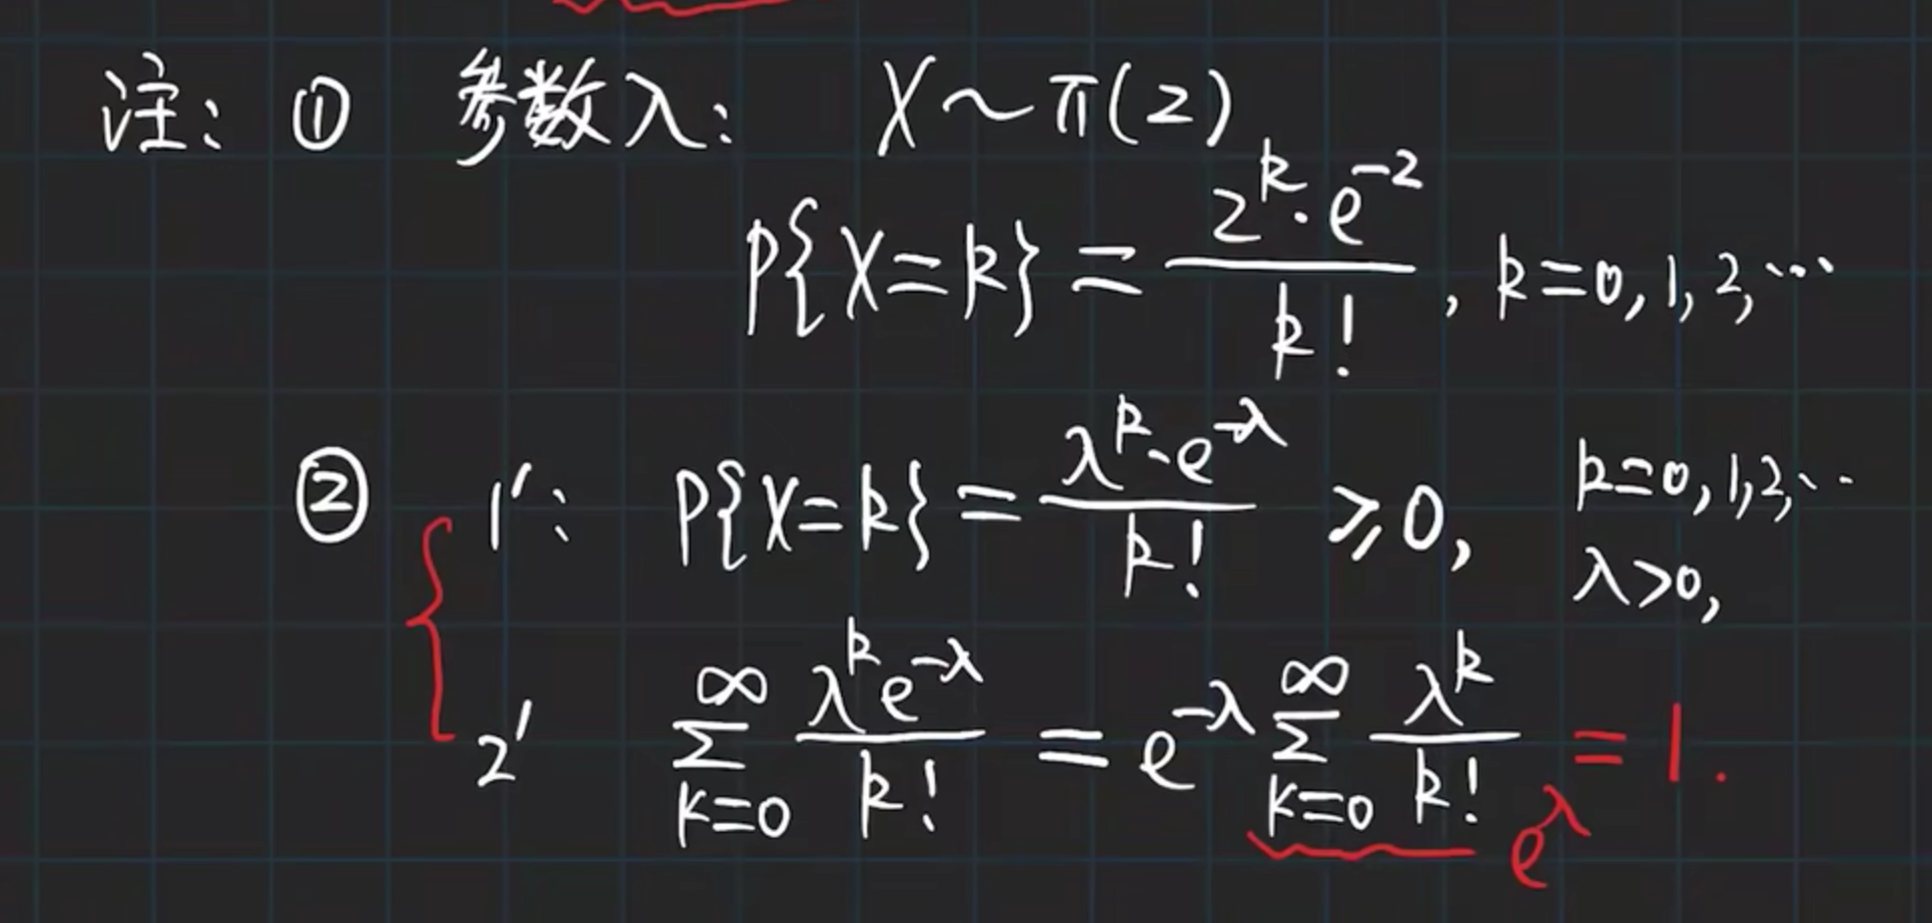 注: ① 参数λ: X~π(2)
P{X=k} = 2^k·e^-2 / k!, k=0,1,2,…
② 1': P{X=k} = λ^k·e^-λ / k! ≥0, k=0,1,2,…
λ>0,
2' ∑_{k=0}^∞ λ^k e^-λ / k! = e^-λ ∑_{k=0}^∞ λ^k / k! = 1.
e^λ